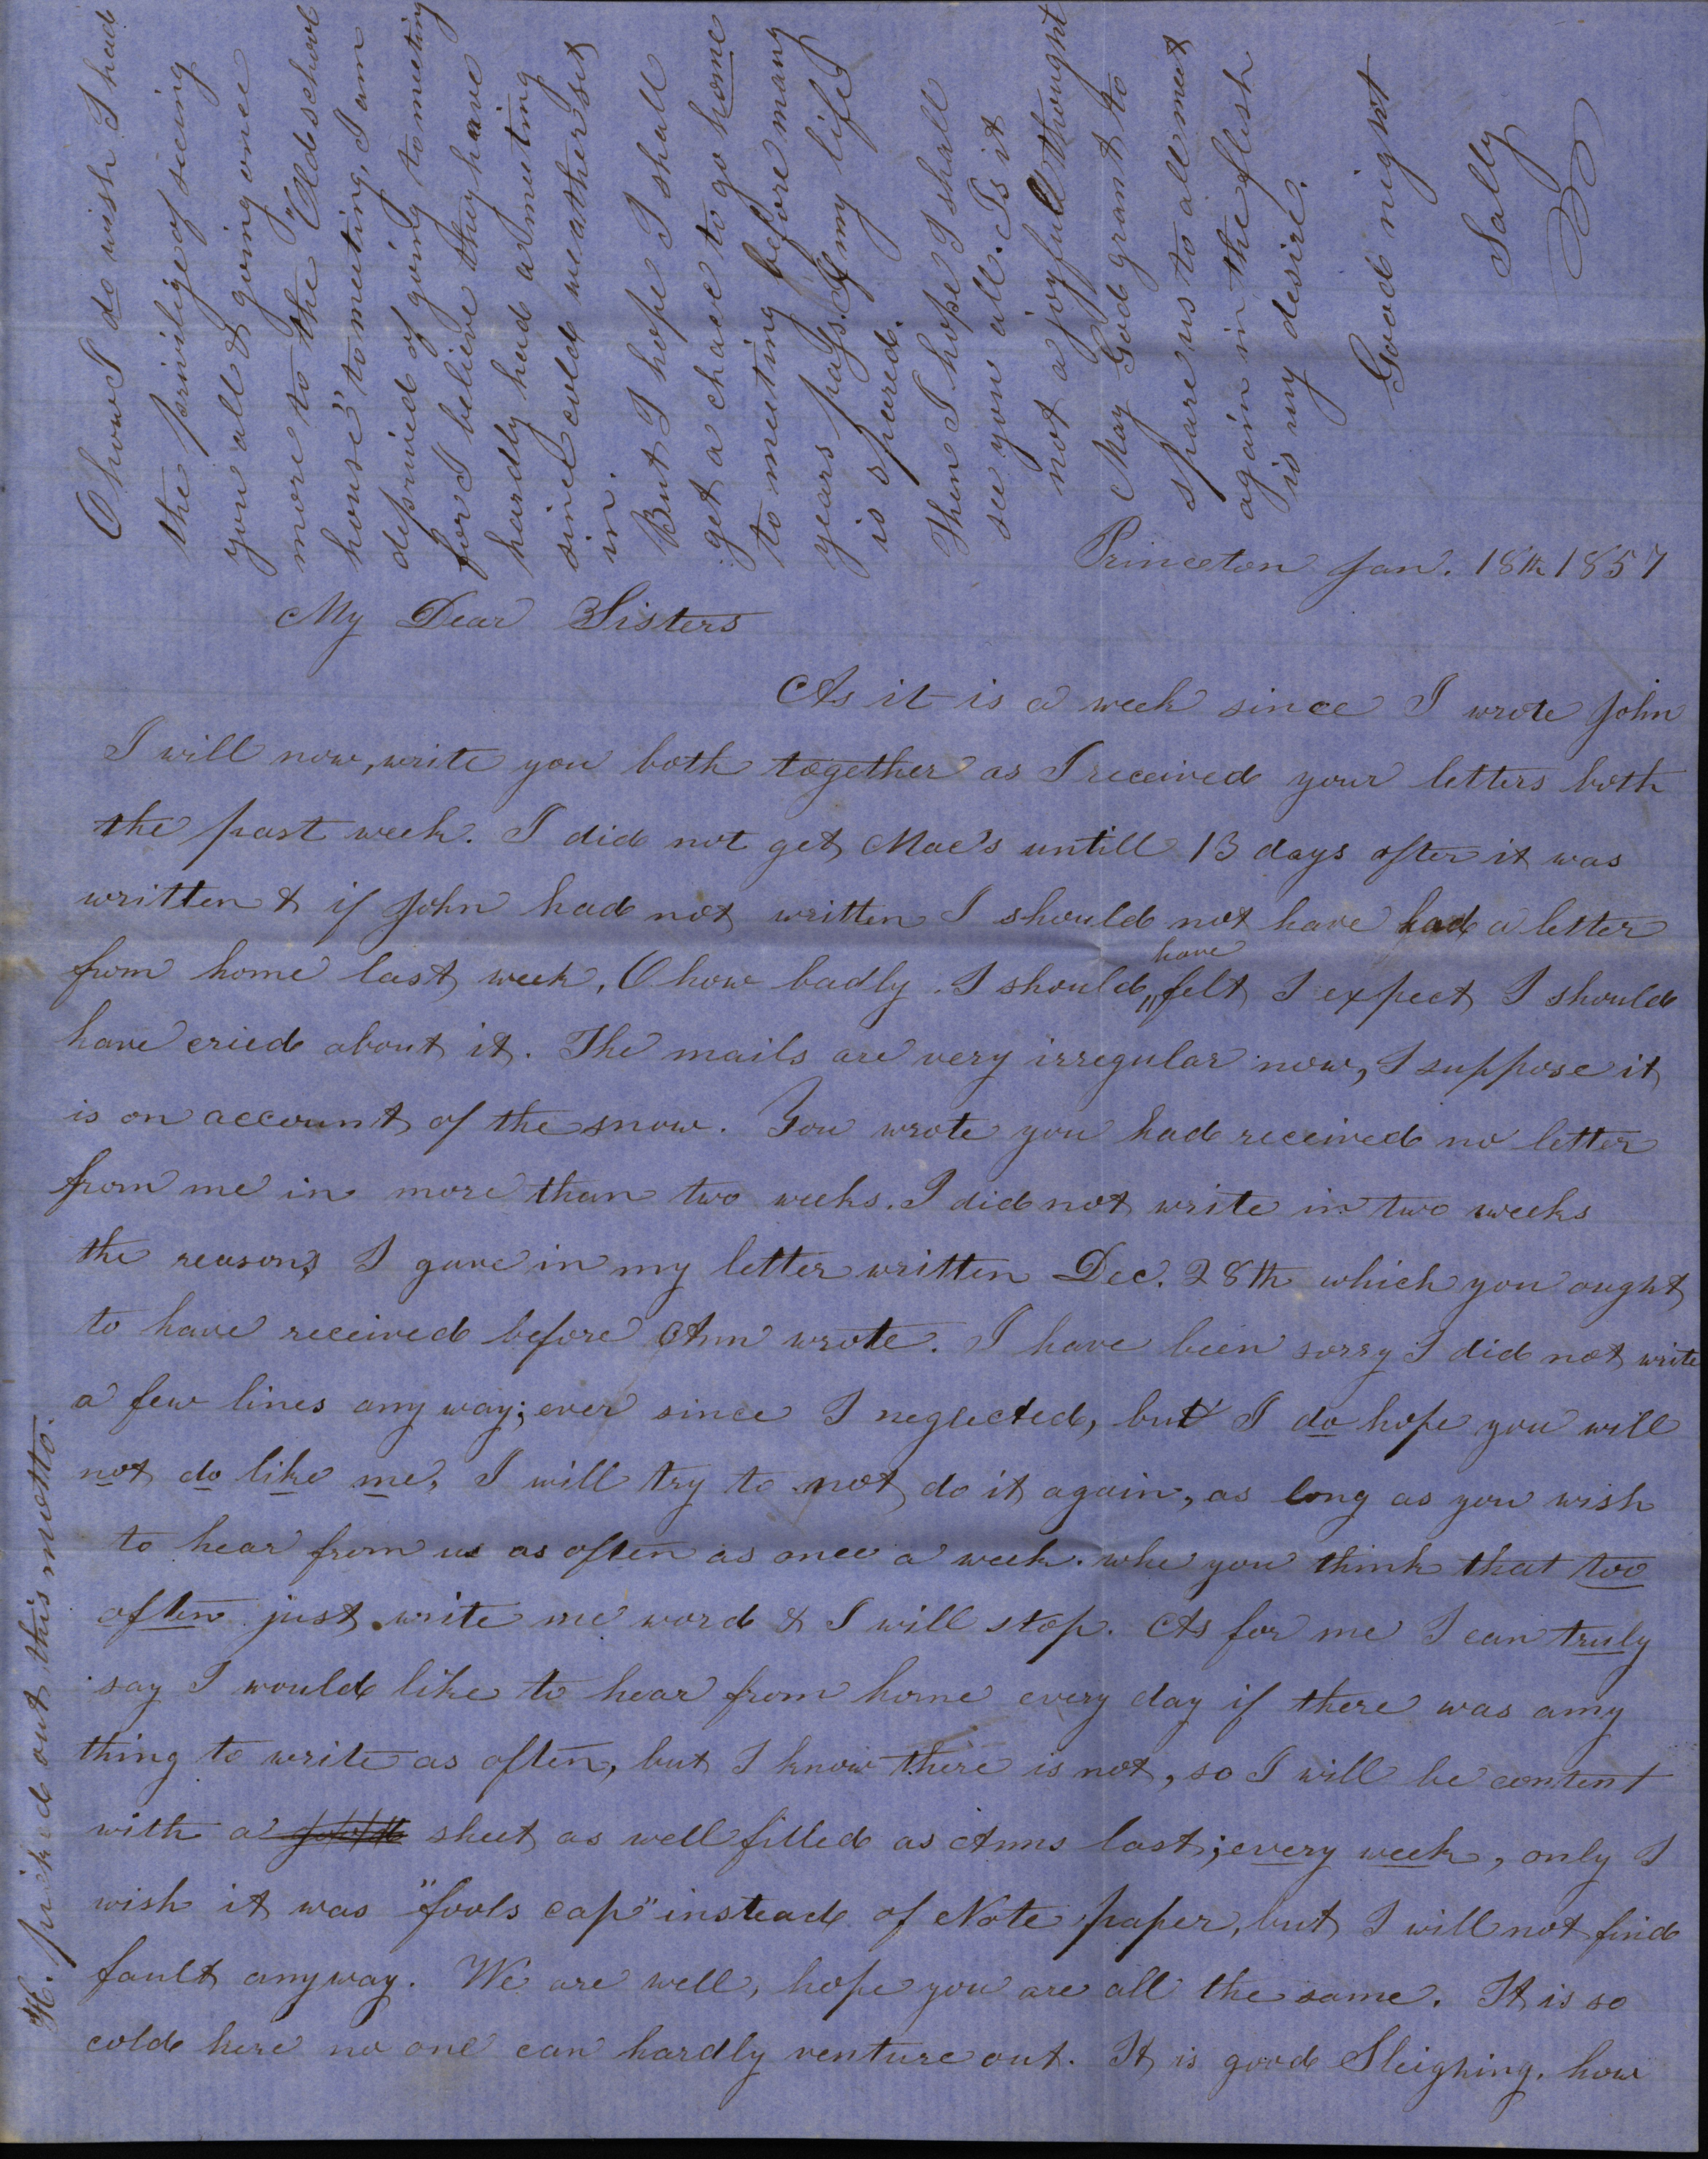 Princeton Jan. 18th 1857
My Dear Sisters
As it is a week since I wrote John
I will now, write you both together as I received your letters both
the past week. I did not get Mac's untill 13 days after it was
written & if John had not written I should not have had a letter
from home last week, O how badly I should have felt I expect I should
have cried about it. The mails are very irregular now, I suppose it
is on account of the snow. You wrote you had received no letter
from me in more than two weeks. I did not write in two weeks
the reasons I gave in my letter written Dec. 28th which you ought
to have received before Ann wrote. I have been sorry I did not write
a few lines any way; ever since I neglected, but I do hope you will
not do like me, I will try to not do it again, as long as you wish
to hear from us as often as once a week. whe you think that too
often just write me word & I will stop. As for me I can truly
say I would like to hear from home every day if there was any
thing to write as often, but I know there is not, so I will be content
with a sheet as well filled as Anns last; every week, only I
wish it was "fools cap" instead of Note paper, but I will not find
fault anyway. We are well, hope you are all the same. It is so
cold here no one can hardly venture out. It is good Sleighing. how
O how I do wish I had
the privilige of seeing
you all & going once
more to the "Old school
house" to meeting, I am
deprived of going to meeting
for I believe they have
hardly had a meeting
since cold weather set
in.
But I hope I shall
get a chance to go home
to meeting before many
years pass. If my life
is spared.
Then I hope I shall
see you all. Is it
not a joyfull thought
May God grant to
spare us to all meet
again in the flesh
is my desire.
Good night
Sally
H. picked out this motto.